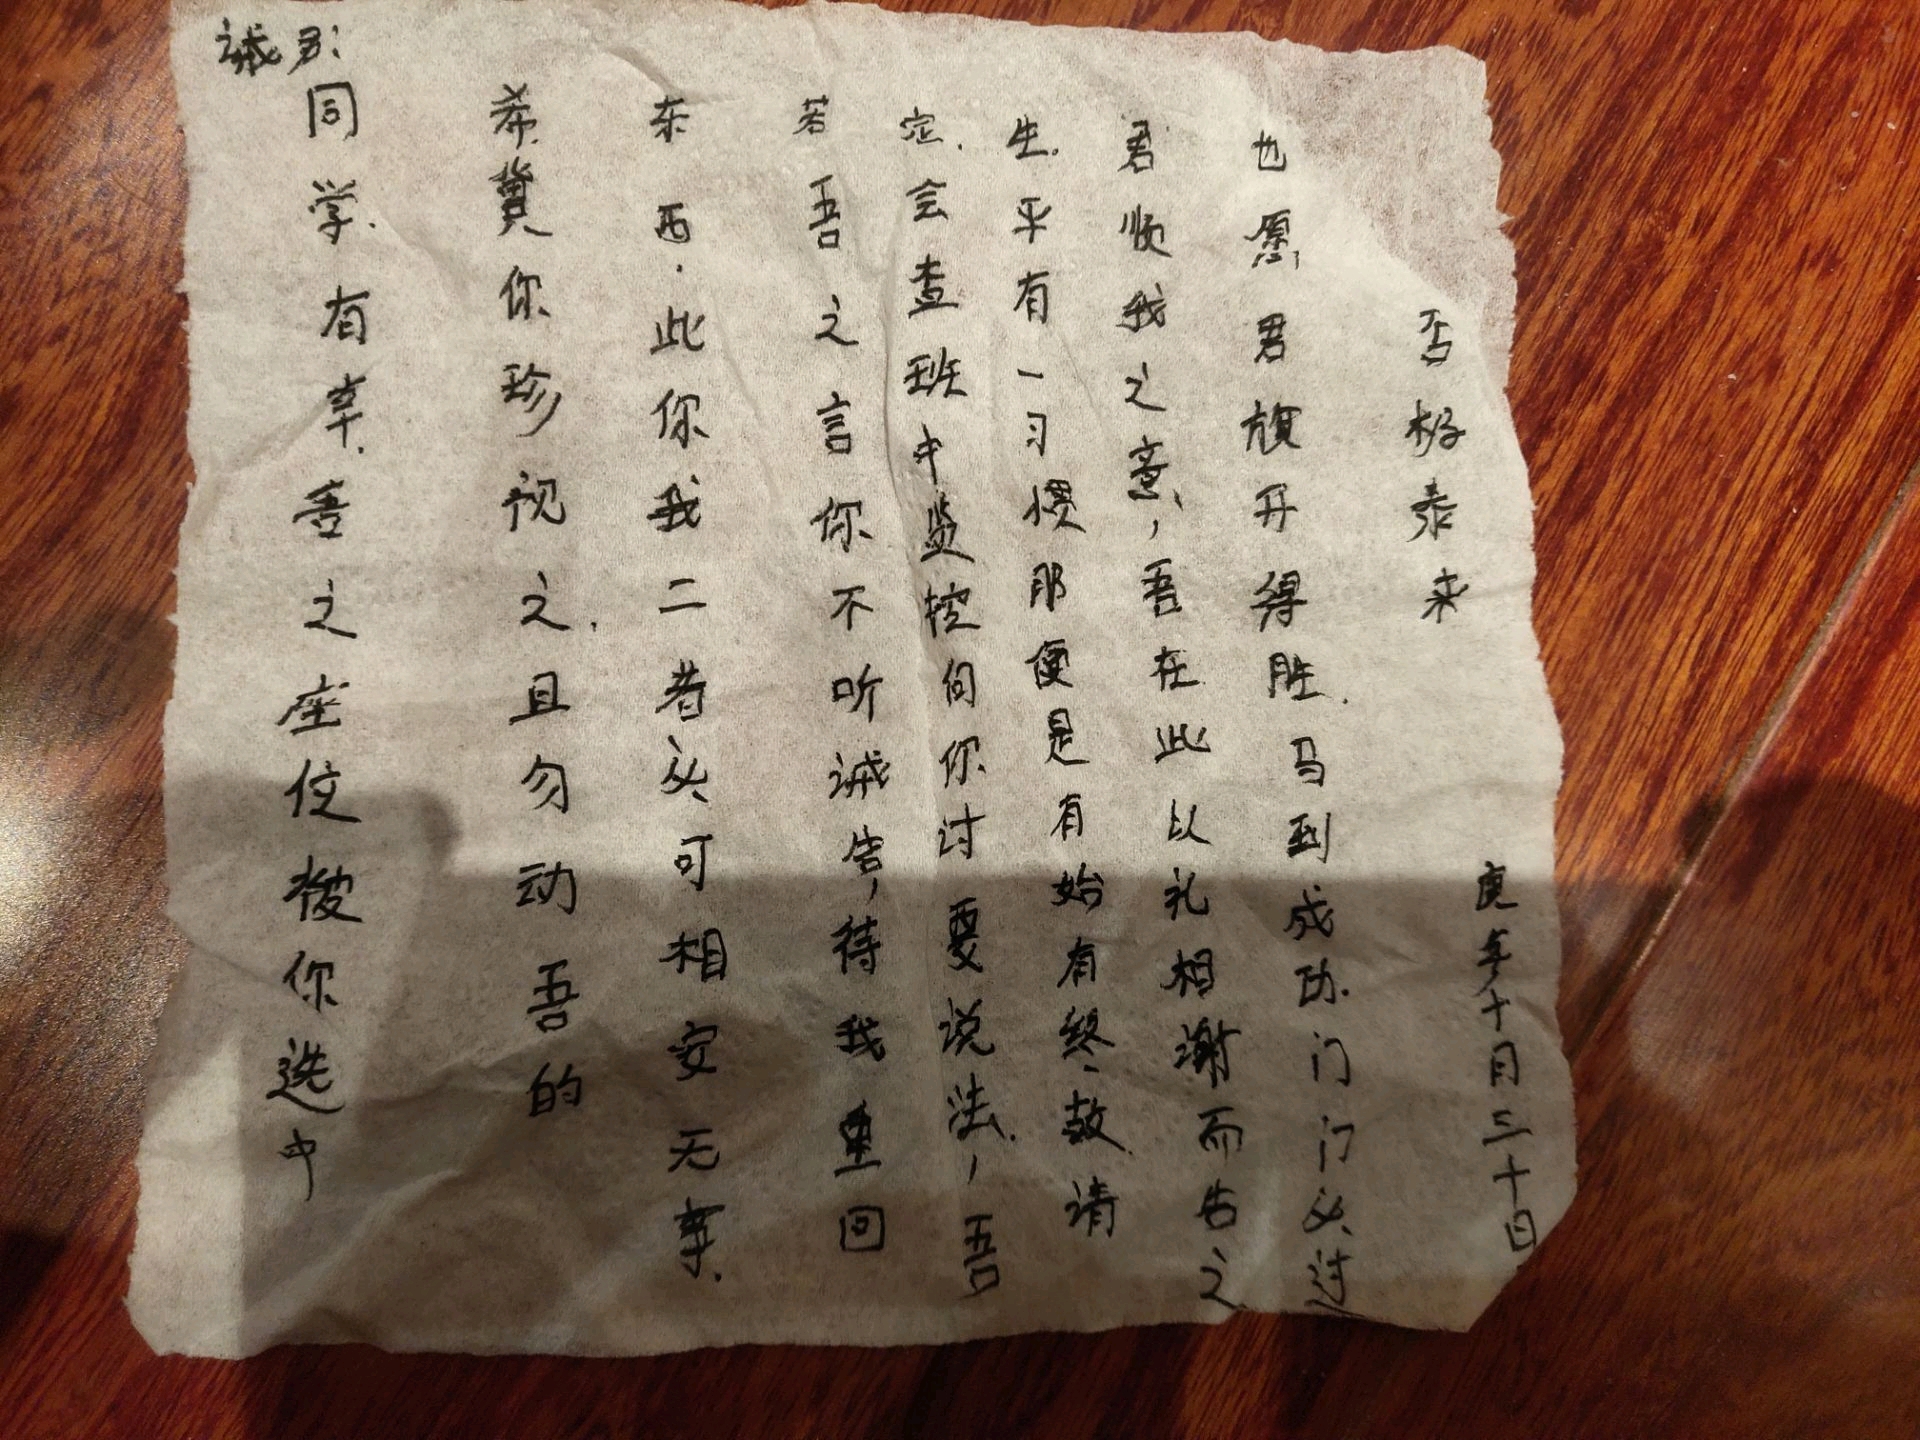 诫君:
同学.有幸.吾之座位被你选中
希.冀你珍视之.且勿动吾的
东西.此你我二者必可相安无事.
若吾之言你不听诫告,待我重回
定.会查班中监控向你讨要说法.,吾
生.平有一习惯那便是有始有终.故请
君顺我之意,吾在此以礼相谢而告之
也愿君旗开得胜.马到成功.门门必过
否极泰来
庚年十月三十日